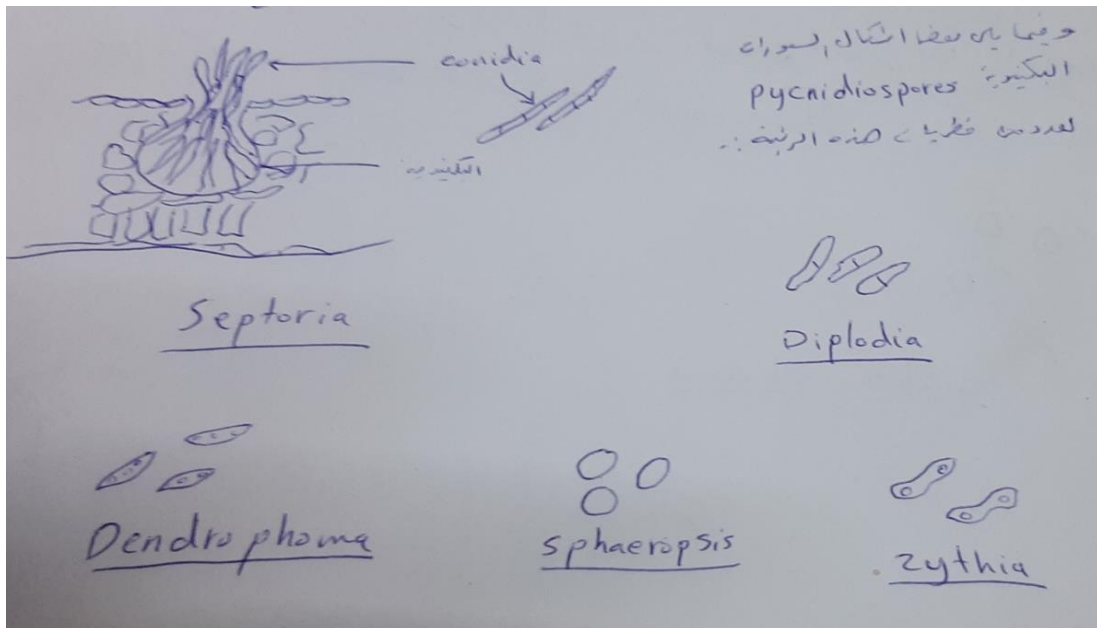 وفيما يلي بعض اشكال السبورات
البكنيدية pycnidiospores
لعدد من فطريات هذه الرتبة :-
conidia
البكنيدية
Septoria
Diplodia
Dendrophoma
Sphaeropsis
Zythia